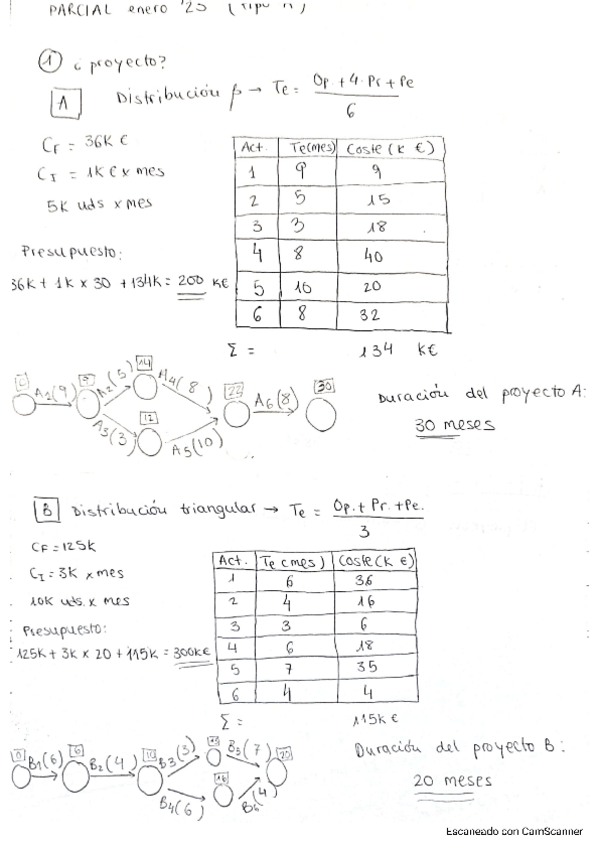 PARCIAL enero '25 (Tipo A)
① ¿ proyecto?
A Distribución β → Te = Op + 4·Pr + Pe
6
CF = 36K €
CI = 1K € x mes
5K uds x mes
Presupuesto:
36K + 1K x 30 + 134K = 200 K€
Act. Te(mes) Coste (K €)
1 9 9
2 5 15
3 3 18
4 8 40
5 10 20
6 8 32
Σ = 134 K€
0 A1(9) 9 A2(5) 14 A4(8) 22 A6(8) 30
A3(3) 12 A5(10)
Duración del proyecto A:
30 meses
B Distribución triangular → Te = Op. + Pr. + Pe.
3
CF = 125K
CI = 3K x mes
10K uds. x mes
Presupuesto:
125K + 3K x 20 + 115K = 300K€
Act. Te (mes) Coste (K €)
1 6 36
2 4 16
3 3 6
4 6 18
5 7 35
6 4 4
Σ = 115K €
0 B1(6) 6 B2(4) 10 B3(3) B5(7) 20
B4(6) 16 B6(4)
Duración del proyecto B:
20 meses
Escaneado con CamScanner